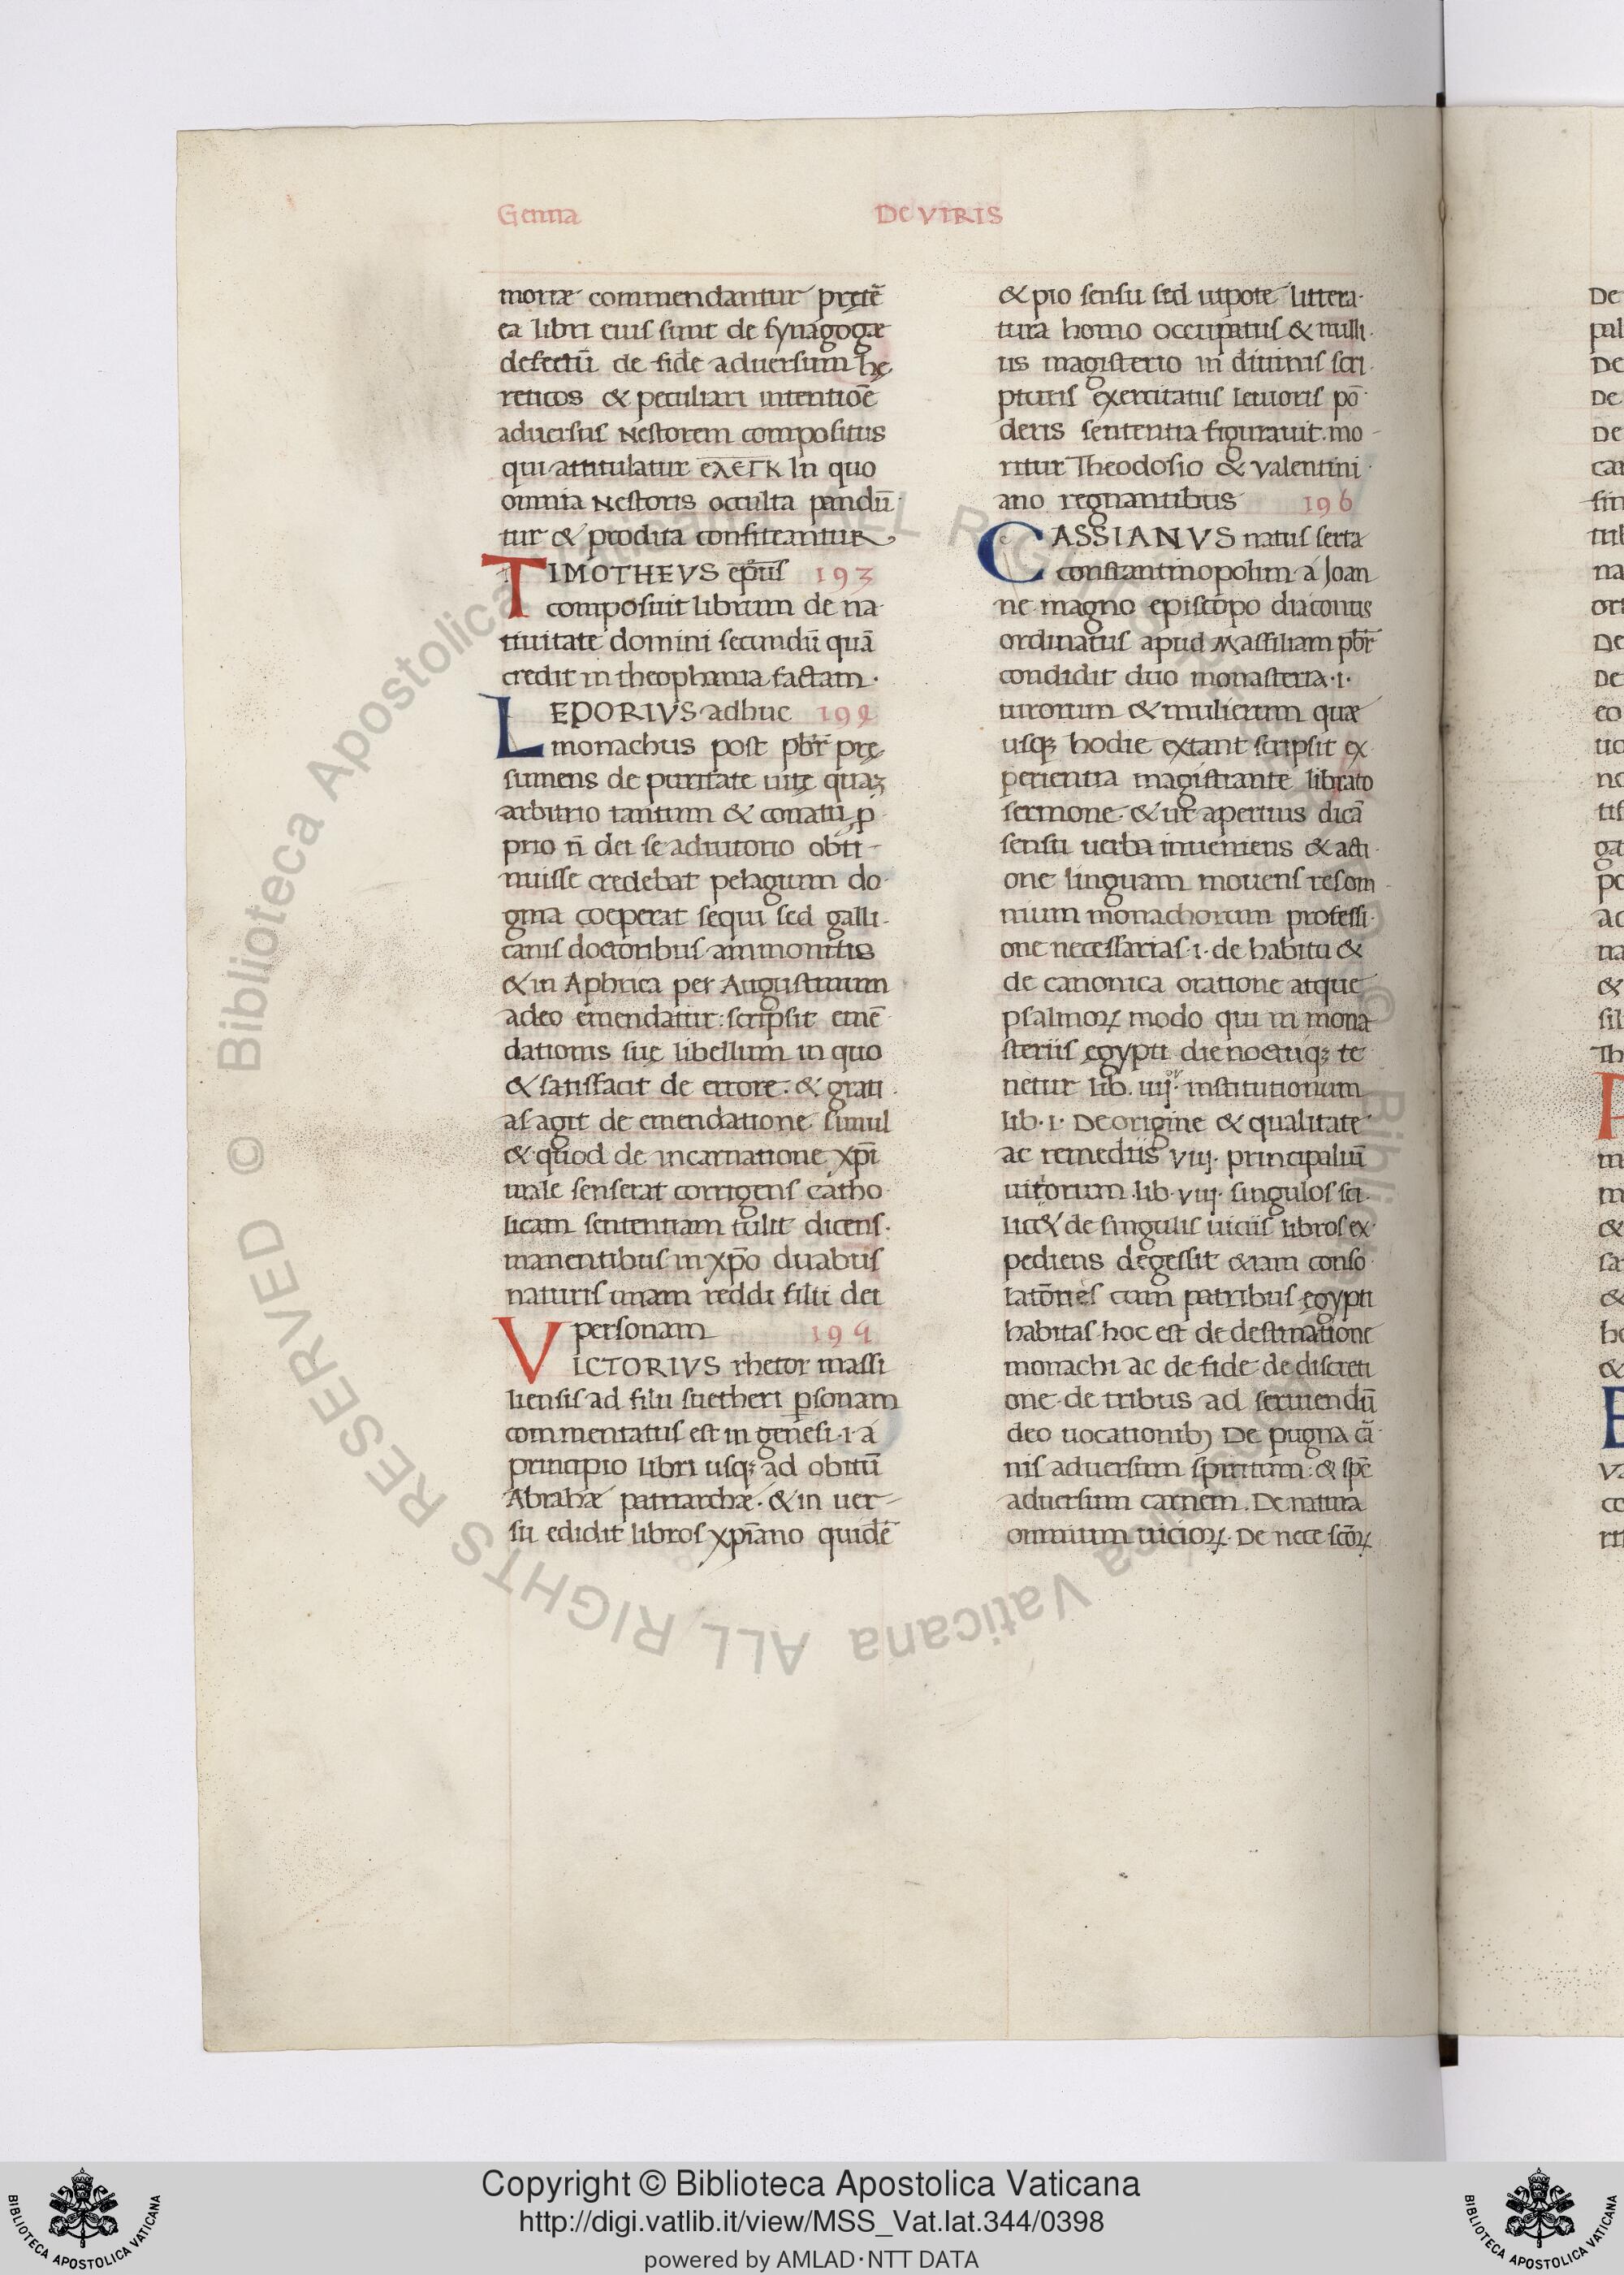 Genna
De VIRIS
moriæ commendantur pretē
ea libri eius sunt de synagogæ
defectū de fide aduersum hę
reticos & peculiari intentiōe
aduersus Nestorem compositus
qui attitulatur ελεΓΚ In quo
omnia Nestoris occulta pandū
tur & prodita confiteantur
TIMOTHEVS ep̄us 193
composuit librum de na
tiuitate domini secundū quā
credit in theophania factam.
LEPORIVS adhuc 194
monachus post pb̄r pre
sumens de puritate uitę quaꝫ
arbitrio tantum & conatu ꝓ
prio n̄ dei se adiutorio obti-
nuisse credebat pelagium do
gma coeperat sequi sed galli
canis doctoribus ammonitus
& in Aphrica per Augustinum
adeo emendatur: scripsit emē
dationis suę libellum in quo
& satisfacit de errore. & grati
as agit de emendatione simul
& quod de incarnatione xp̄i
male senserat corrigens catho
licam sententiam tulit dicens.
manentibus in xp̄o duabus
naturis unam reddi filii dei
personam 195
VICTORIVS rhetor massi
liensis ad filii suetheri ꝑsonam
commentatus est in genesi .i. a
principio libri usqꝫ ad obitū
Abrahæ patriarchæ. & in uer-
su edidit libros xp̄iano quidē
& pio sensu sed utpote littera
tura homo occupatus & nulli
us magisterio in diuinis scri
pturis exercitatus leuioris pō
deris sententia figurauit. mo-
ritur Theodosio & Valentini
ano regnantibus 196
CASSIANVS natus serta
constantinopolim a Joan
ne magno episcopo diaconus
ordinatus apud Massiliam pb̄r
condidit duo monasteria .i.
uirorum & mulierum quæ
usqꝫ hodie extant scripsit ex
perientia magistrante librato
sermone. & ut apertius dicā
sensu uerba inueniens & acti
one linguam mouens res om
nium monachorum professi
one necessarias .i. de habitu &
de canonica oratione atque
psalmoꝝ modo qui in mona
steriis egypti die noctuqꝫ te
netur lib. iiij. institutionum
lib. i. De origine & qualitate
ac remediis viij. principaliū
uitiorum. lib. viij. singulos sci
lic& de singulis uiciis libros ex
pediens degessit &iam conso
lationes cum patribus egypti
habitas hoc est de destinatione
monachi ac de fide de discreti
one de tribus ad seruiendū
deo uocationibꝫ De pugna cā
nis aduersum spiritum: & spē
aduersum carnem. De natura
omnium uicioꝝ. De nece sc̄oꝝ
Copyright © Biblioteca Apostolica Vaticana
http://digi.vatlib.it/view/MSS_Vat.lat.344/0398
powered by AMLAD·NTT DATA
BIBLIOTECA APOSTOLICA VATICANA
BIBLIOTECA APOSTOLICA VATICANA